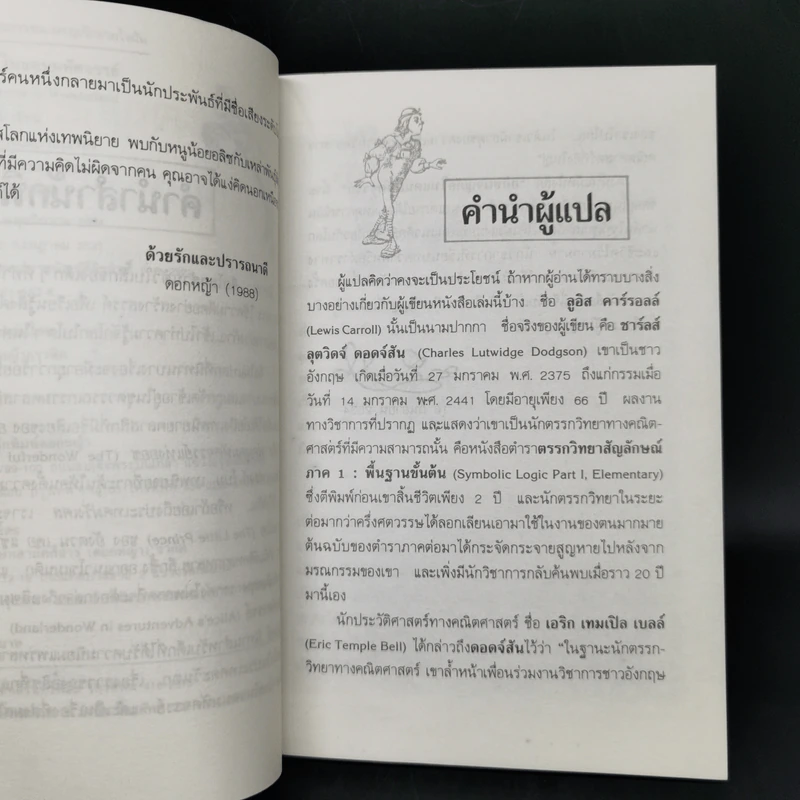 ร์คนหนึ่งกลายมาเป็นนักประพันธ์ที่มีชื่อเสียงระดับ
โลกแห่งเทพนิยาย พบกับหนูน้อยอลิซกับเหล่า
ที่มีความคิดไม่ผิดจากคน คุณอาจได้แง่คิดนอกเหนือ
ได้
ด้วยรักและปรารถนาดี
ดอกหญ้า (1988)
คำนำผู้แปล
ผู้แปลคิดว่าคงจะเป็นประโยชน์ ถ้าหากผู้อ่านได้ทราบบางสิ่ง
บางอย่างเกี่ยวกับผู้เขียนหนังสือเล่มนี้บ้าง ชื่อ ลูอิส คาร์รอลล์
(Lewis Carroll) นั้นเป็นนามปากกา ชื่อจริงของผู้เขียน คือ ชาร์ลส์
ลุตวิดจ์ ดอดจ์สัน (Charles Lutwidge Dodgson) เขาเป็นชาว
อังกฤษ เกิดเมื่อวันที่ 27 มกราคม พ.ศ. 2375 ถึงแก่กรรมเมื่อ
วันที่ 14 มกราคม พ.ศ. 2441 โดยมีอายุเพียง 66 ปี ผลงาน
ทางวิชาการที่ปรากฏ และแสดงว่าเขาเป็นนักตรรกวิทยาทางคณิต-
ศาสตร์ที่มีความสามารถนั้น คือหนังสือตำราตรรกวิทยาสัญลักษณ์
ภาค 1 : พื้นฐานขั้นต้น (Symbolic Logic Part I, Elementary)
ซึ่งตีพิมพ์ก่อนเขาสิ้นชีวิตเพียง 2 ปี และนักตรรกวิทยาในระยะ
ต่อมากว่าครึ่งศตวรรษได้ลอกเลียนเอามาใช้ในงานของตนมากมาย
ต้นฉบับของตำราภาคต่อมาได้กระจัดกระจายสูญหายไปหลังจาก
มรณกรรมของเขา และเพิ่งมีนักวิชาการกลับค้นพบเมื่อราว 20 ปี
มานี้เอง
นักประวัติศาสตร์ทางคณิตศาสตร์ ชื่อ เอริก เทมเปิล เบลล์
(Eric Temple Bell) ได้กล่าวถึงดอดจ์สันไว้ว่า "ในฐานะนักตรรก-
วิทยาทางคณิตศาสตร์ เขาล้ำหน้าเพื่อนร่วมงานวิชาการชาวอังกฤษ